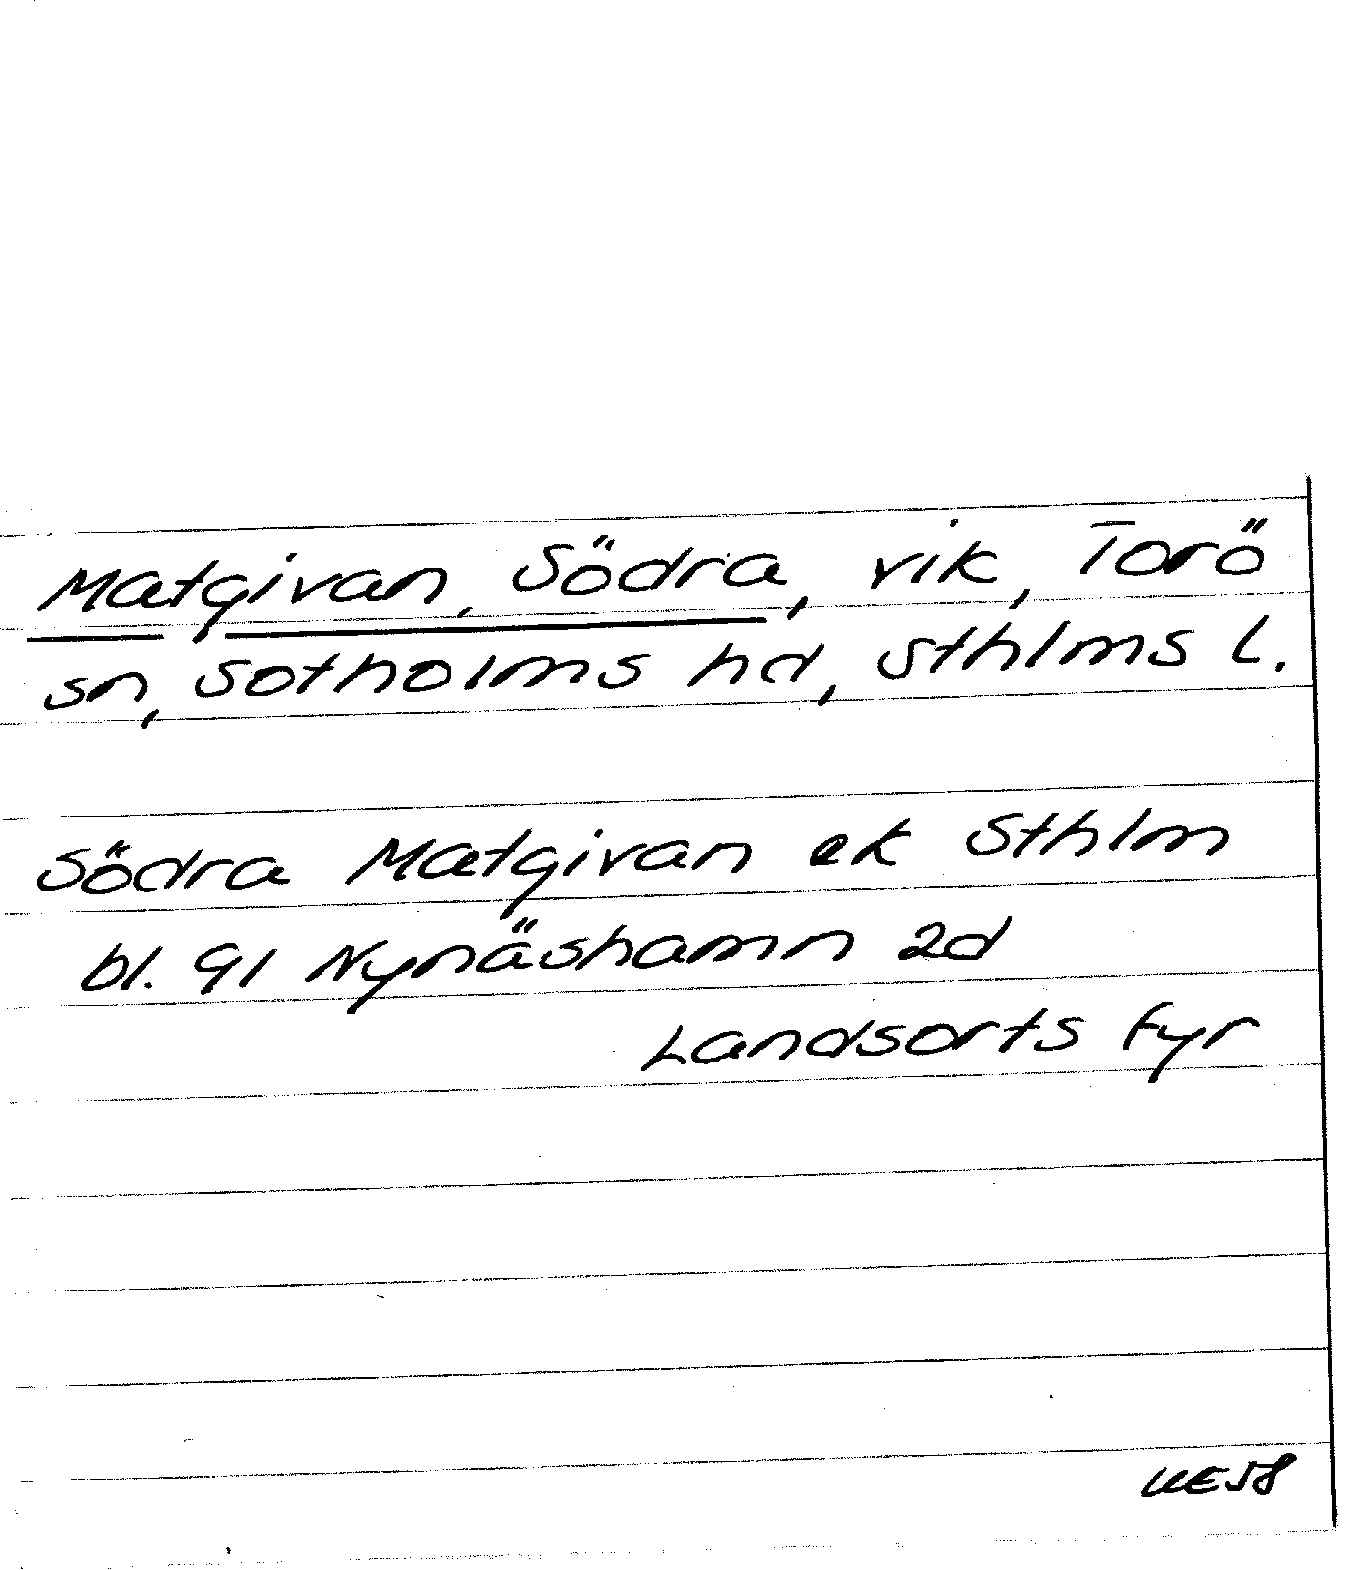 Matgivan, Södra, vik, Torö
sn, Sotholms hd, Sthlms l.
Södra Matgivan ek Sthlm
bl. 91 Nynäshamn 2d
Landsorts fyr